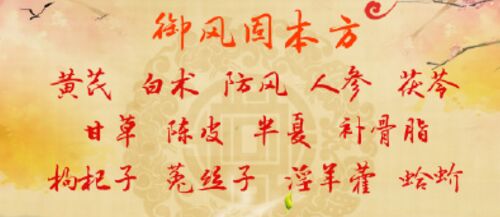 御风固本方
黄芪 白术 防风 人参 茯苓
甘草 陈皮 半夏 补骨脂
枸杞子 菟丝子 淫羊藿 蛤蚧